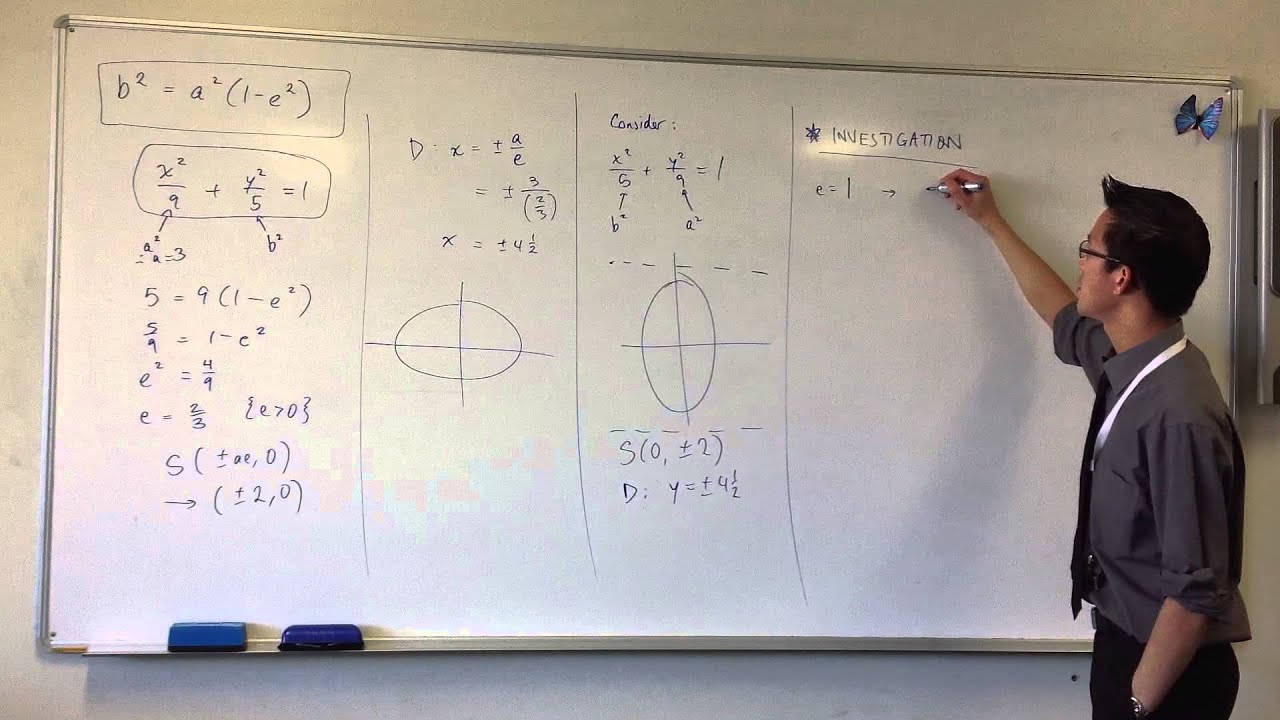 b² = a²(1-e²)
x²/9 + y²/5 = 1
a² b²
± a = 3
5 = 9(1-e²)
5/9 = 1-e²
e² = 4/9
e = 2/3 {e>0}
S(±ae, 0)
→ (±2, 0)
D: x = ± a/e
= ± 3/(2/3)
x = ± 4 1/2
Consider:
x²/5 + y²/9 = 1
b² a²
S(0, ±2)
D: y = ± 4 1/2
* INVESTIGATION
e = 1 →